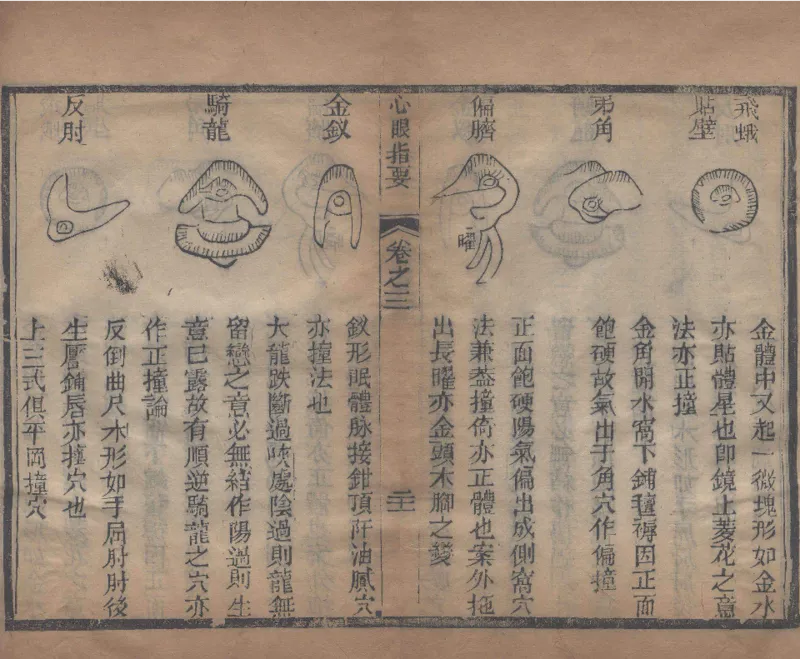 飛蛾
貼壁
金體中又起一微塊形如金水
亦貼體星也卽鏡上菱花之意
法亦正撞
弟角
金角開水窩下鋪氊褥因正面
飽硬故氣出于角穴作偏撞
偏臍
曜
正面飽硬陽氣偏出成側窩穴
法兼葢撞倚亦正體也案外拖
出長曜亦金頭木腳之變
心眼指要
卷之三
二十一
金釵
釵形眠體脉接鉗頂阡油膩穴
亦撞法也
騎龍
大龍跌斷過峽處陰過則龍無
留戀之意必無結作陽過則生
意已露故有順逆騎龍之穴亦
作正撞論
反肘
反倒曲尺木形如手屈肘肘後
生靨鋪唇亦撞穴也
上三式俱平岡撞穴